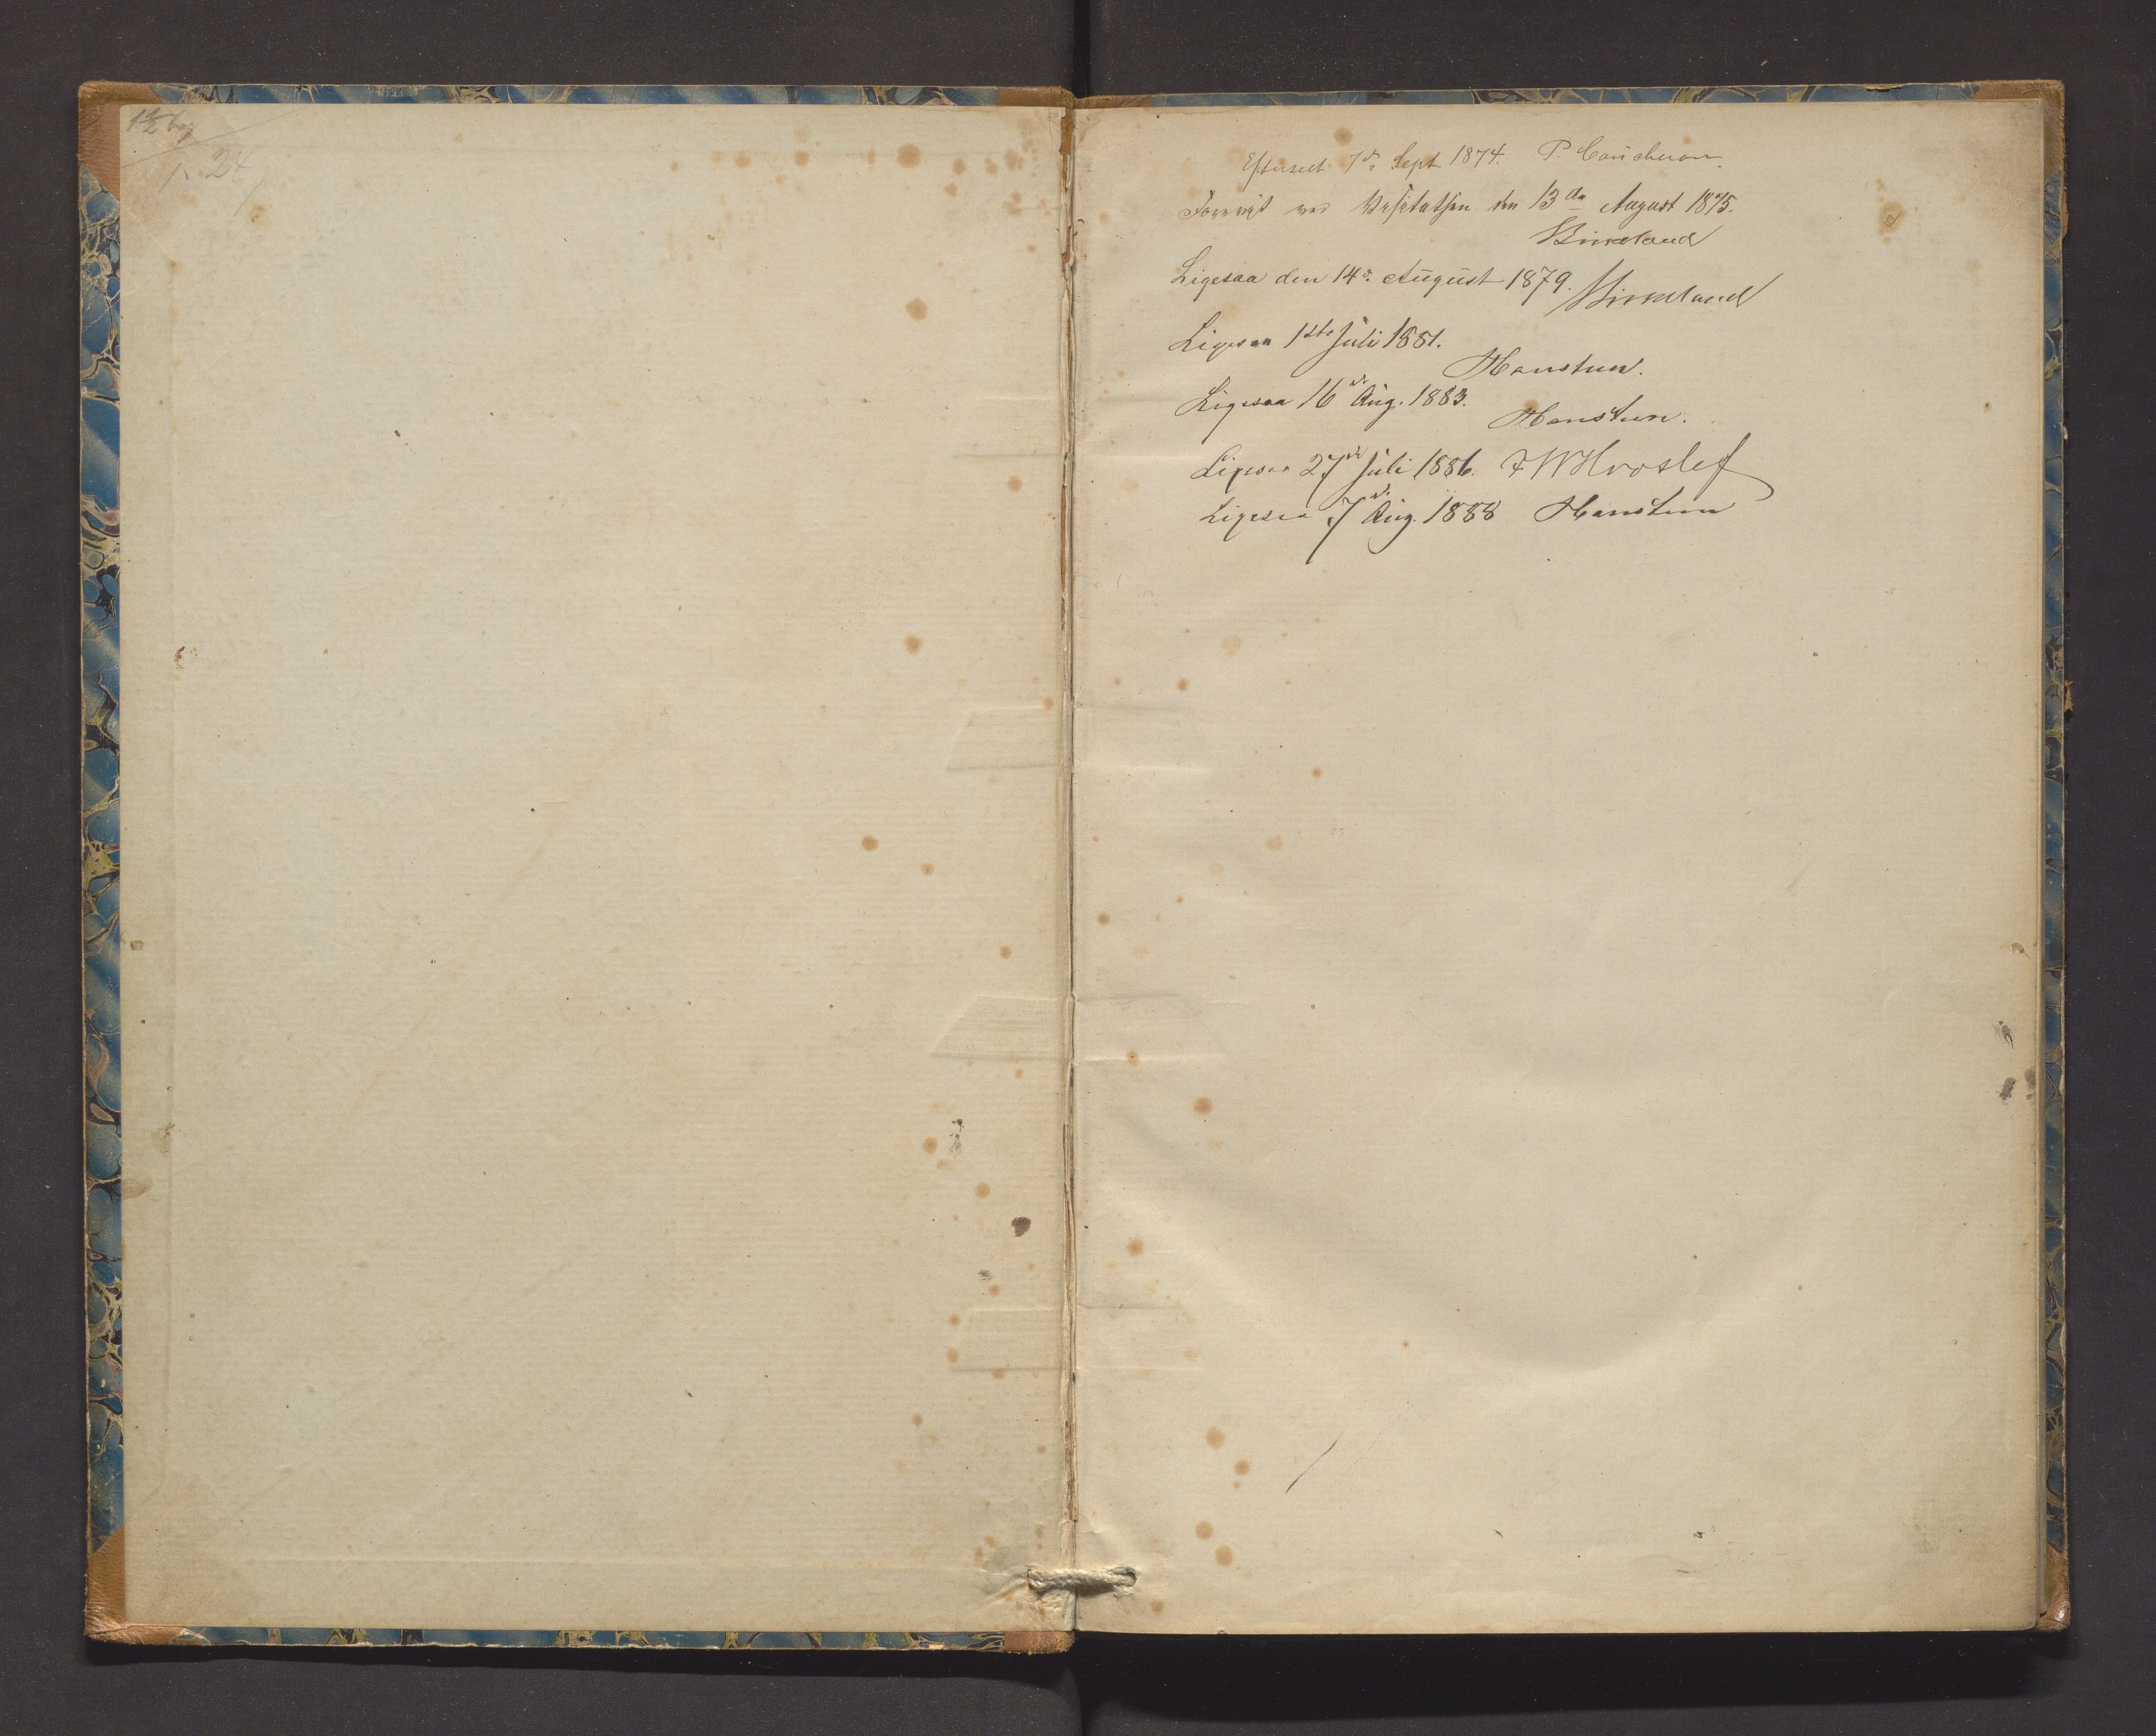 1½ bog
24
Efterseet 7de Sept. 1874. P. Coucheron.
Forevist ved Visitatsen den 13de August 1875.
Birkeland
Ligesaa den 14de August 1879. Birkeland
Ligesaa 1ste Juli 1881.
Hansteen.
Ligesaa 16de Aug. 1883.
Hansteen.
Ligesaa 27de Juli 1886. F W Hvoslef
Ligesaa 7de Aug. 1888 Hansteen